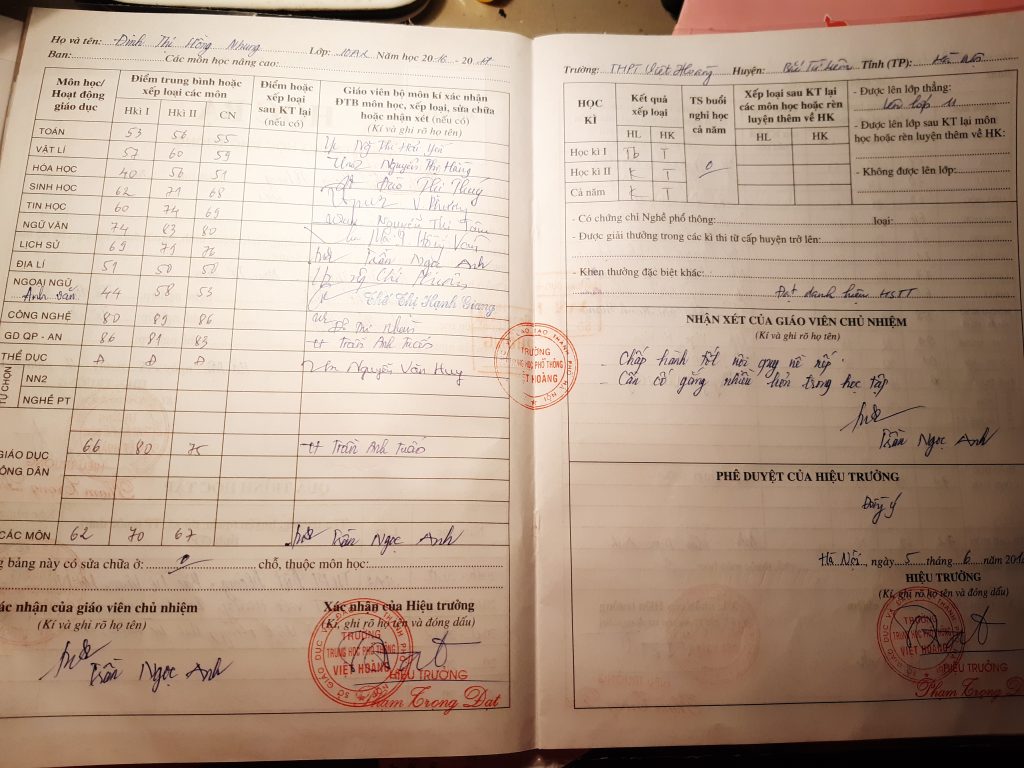 Họ và tên: Đinh Thị Hồng Nhung Lớp: 10A2 Năm học 2016 - 2017
Ban: Các môn học nâng cao:
Môn học/ Hoạt động giáo dục
Điểm trung bình hoặc xếp loại các môn
Hki I Hki II CN
Điểm hoặc xếp loại sau KT lại (nếu có)
Giáo viên bộ môn kí xác nhận ĐTB môn học, xếp loại, sửa chữa hoặc nhận xét (nếu có)
(Kí và ghi rõ họ tên)
TOÁN 53 56 55
VẬT LÍ 57 60 59 Nguyễn Thị Hằng
HÓA HỌC 40 56 51 Đào Thị Thúy
SINH HỌC 62 71 68 V. Phương
TIN HỌC 60 74 69 Nguyễn Thị Tâm
NGỮ VĂN 74 83 80
LỊCH SỬ 69 79 76 Trần Ngọc Anh
ĐỊA LÍ 51 50 50
NGOẠI NGỮ Anh văn 44 58 53 Thị Hạnh Giang
CÔNG NGHỆ 80 89 86
GD QP - AN 86 81 83 Trần Anh Tuấn
THỂ DỤC Đ Đ Đ Nguyễn Văn Huy
TỰ CHỌN
NN2
NGHỀ PT
GIÁO DỤC CÔNG DÂN 66 80 75 Trần Anh Tuấn
CÁC MÔN 62 70 67 Trần Ngọc Anh
g bảng này có sửa chữa ở: 0 chỗ, thuộc môn học:
ác nhận của giáo viên chủ nhiệm
(Kí và ghi rõ họ tên)
Trần Ngọc Anh
Xác nhận của Hiệu trưởng
(Kí, ghi rõ họ tên và đóng dấu)
SỞ GIÁO DỤC VÀ ĐÀO TẠO THÀNH PHỐ HÀ NỘI
TRƯỜNG
TRUNG HỌC PHỔ THÔNG
VIỆT HOÀNG
HIỆU TRƯỞNG
Phạm Trọng Đạt
TRƯỜNG
TRUNG HỌC PHỔ THÔNG
VIỆT HOÀNG
Trường: THPT Việt Hoàng Huyện: Bắc Từ Liêm Tỉnh (TP): Hà Nội
HỌC KÌ
Kết quả xếp loại
HL HK
TS buổi nghỉ học cả năm
Xếp loại sau KT lại các môn học hoặc rèn luyện thêm về HK
HL HK
Học kì I Tb T
Học kì II K T
Cả năm K T
0
- Được lên lớp thẳng:
Lên lớp 11
- Được lên lớp sau KT lại môn học hoặc rèn luyện thêm về HK:
- Không được lên lớp:
- Có chứng chỉ Nghề phổ thông: loại:
- Được giải thưởng trong các kì thi từ cấp huyện trở lên:
- Khen thưởng đặc biệt khác:
Đạt danh hiệu HSTT
NHẬN XÉT CỦA GIÁO VIÊN CHỦ NHIỆM
(Kí và ghi rõ họ tên)
- Chấp hành tốt nội quy nề nếp.
- Cần cố gắng nhiều hơn trong học tập
Trần Ngọc Anh
PHÊ DUYỆT CỦA HIỆU TRƯỞNG
Đồng ý
Hà Nội, ngày 5 tháng 6 năm 201
HIỆU TRƯỞNG
(Kí, ghi rõ họ tên và đóng dấu)
TRƯỜNG
TRUNG HỌC PHỔ THÔNG
VIỆT HOÀNG
HIỆU TRƯỞNG
Phạm Trọng Đạt